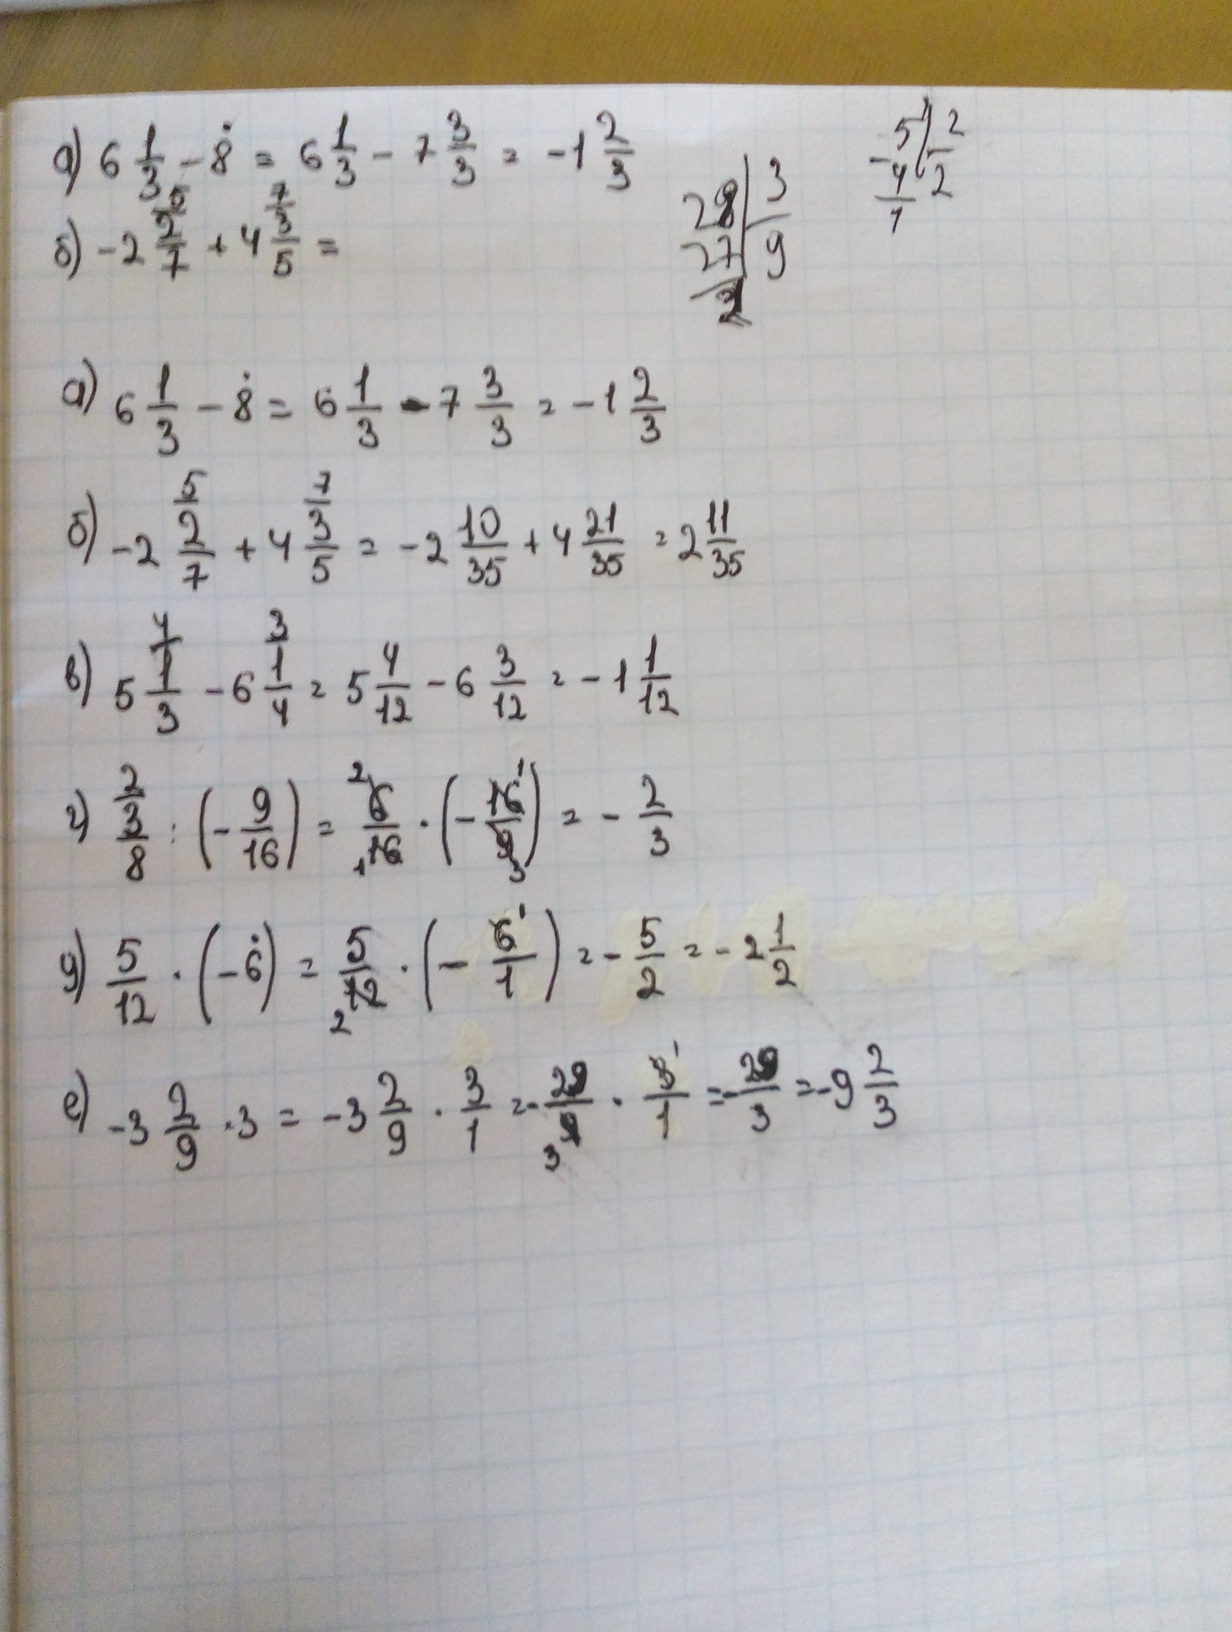 а) 6 1/3 - 8 = 6 1/3 - 7 3/3 = -1 2/3
5 2
4 2
1
28 3
27 9
2
б) -2 2/7 + 4 3/5 =
а) 6 1/3 - 8 = 6 1/3 - 7 3/3 = -1 2/3
5 7
б) -2 2/7 + 4 3/5 = -2 10/35 + 4 21/35 = 2 11/35
4 3
в) 5 1/3 - 6 1/4 = 5 4/12 - 6 3/12 = -1 1/12
2 2 1
г) 3/8 : (-9/16) = 6/16 · (-16/9) = -2/3
1 3
1
д) 5/12 · (-6) = 5/12 · (-6/1) = -5/2 = -2 1/2
2
1
е) -3 2/9 · 3 = -3 2/9 · 3/1 = -29/9 · 3/1 = -29/3 = -9 2/3
3